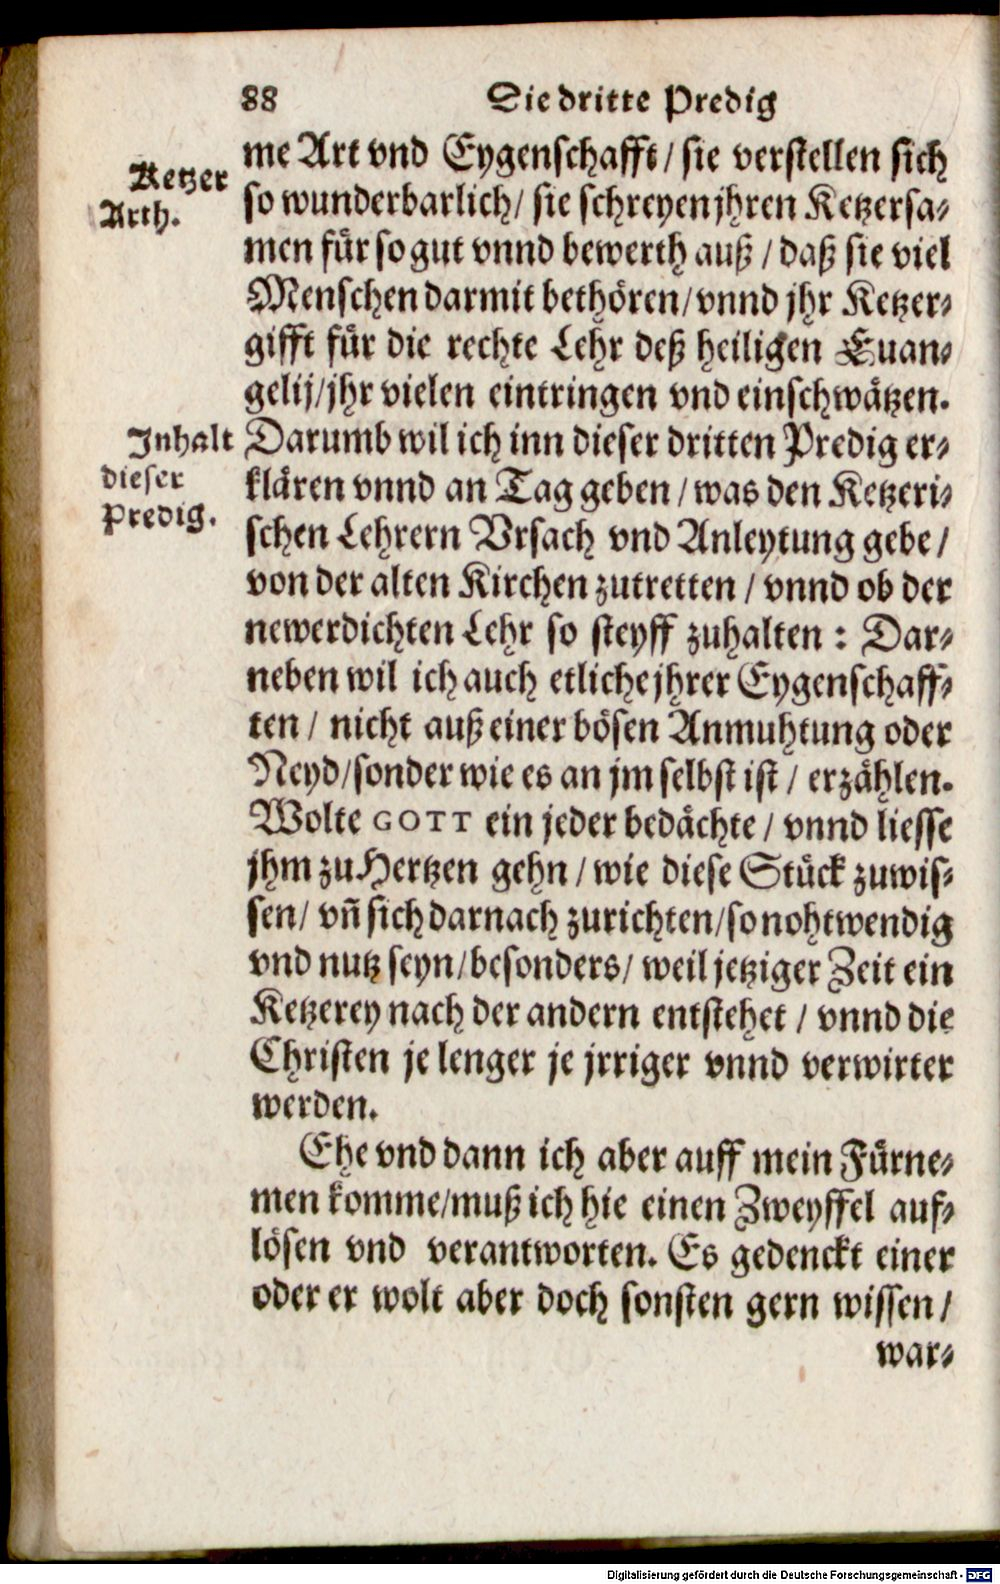 88 Die dritte Predig
me Art vnd Eygenschafft/ sie verstellen sich
Ketzer
Arth.
so wunderbarlich/ sie schreyen jhren Ketzersa⸗
men für so gut vnnd bewerth auß / daß sie viel
Menschen darmit bethören/ vnnd jhr Ketzer⸗
gifft für die rechte Lehr deß heiligen Euan⸗
gelij/ jhr vielen eintringen vnd einschwätzen.
Inhalt
dieser
Predig.
Darumb wil ich inn dieser dritten Predig er⸗
klären vnnd an Tag geben / was den Ketzeri⸗
schen Lehrern Vrsach vnd Anleytung gebe /
von der alten Kirchen zutretten / vnnd ob der
newerdichten Lehr so steyff zuhalten : Dar⸗
neben wil ich auch etliche jhrer Eygenschaff⸗
ten / nicht auß einer bösen Anmuhtung oder
Neyd/ sonder wie es an jm selbst ist / erzählen.
Wolte GOTT ein jeder bedächte / vnnd liesse
jhm zu Hertzen gehn / wie diese Stück zuwis⸗
sen/ vñ sich darnach zurichten/ so nohtwendig
vnd nutz seyn/ besonders/ weil jetziger Zeit ein
Ketzerey nach der andern entstehet / vnnd die
Christen je lenger je jrriger vnnd verwirter
werden.
Ehe vnd dann ich aber auff mein Fürne⸗
men komme/ muß ich hie einen Zweyffel auf⸗
lösen vnd verantworten. Es gedenckt einer
oder er wolt aber doch sonsten gern wissen /
war⸗
Digitalisierung gefördert durch die Deutsche Forschungsgemeinschaft - DFG